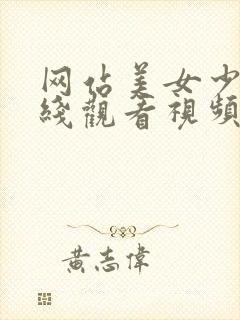 网佔美女少
綫觀看視頻
黃志偉